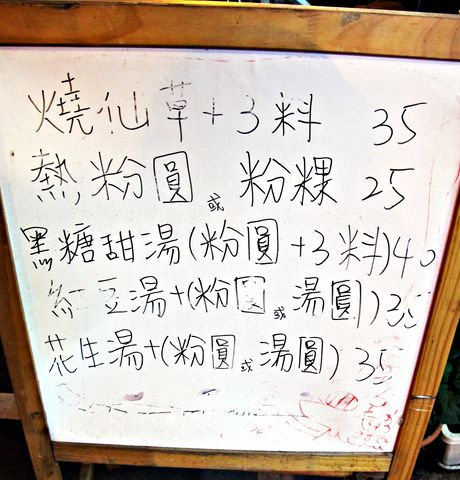 燒仙草+3料 35
熱粉圓或粉粿 25
黑糖甜湯(粉圓+3料)40
紅豆湯+(粉圓或湯圓)35
花生湯+(粉圓或湯圓)35